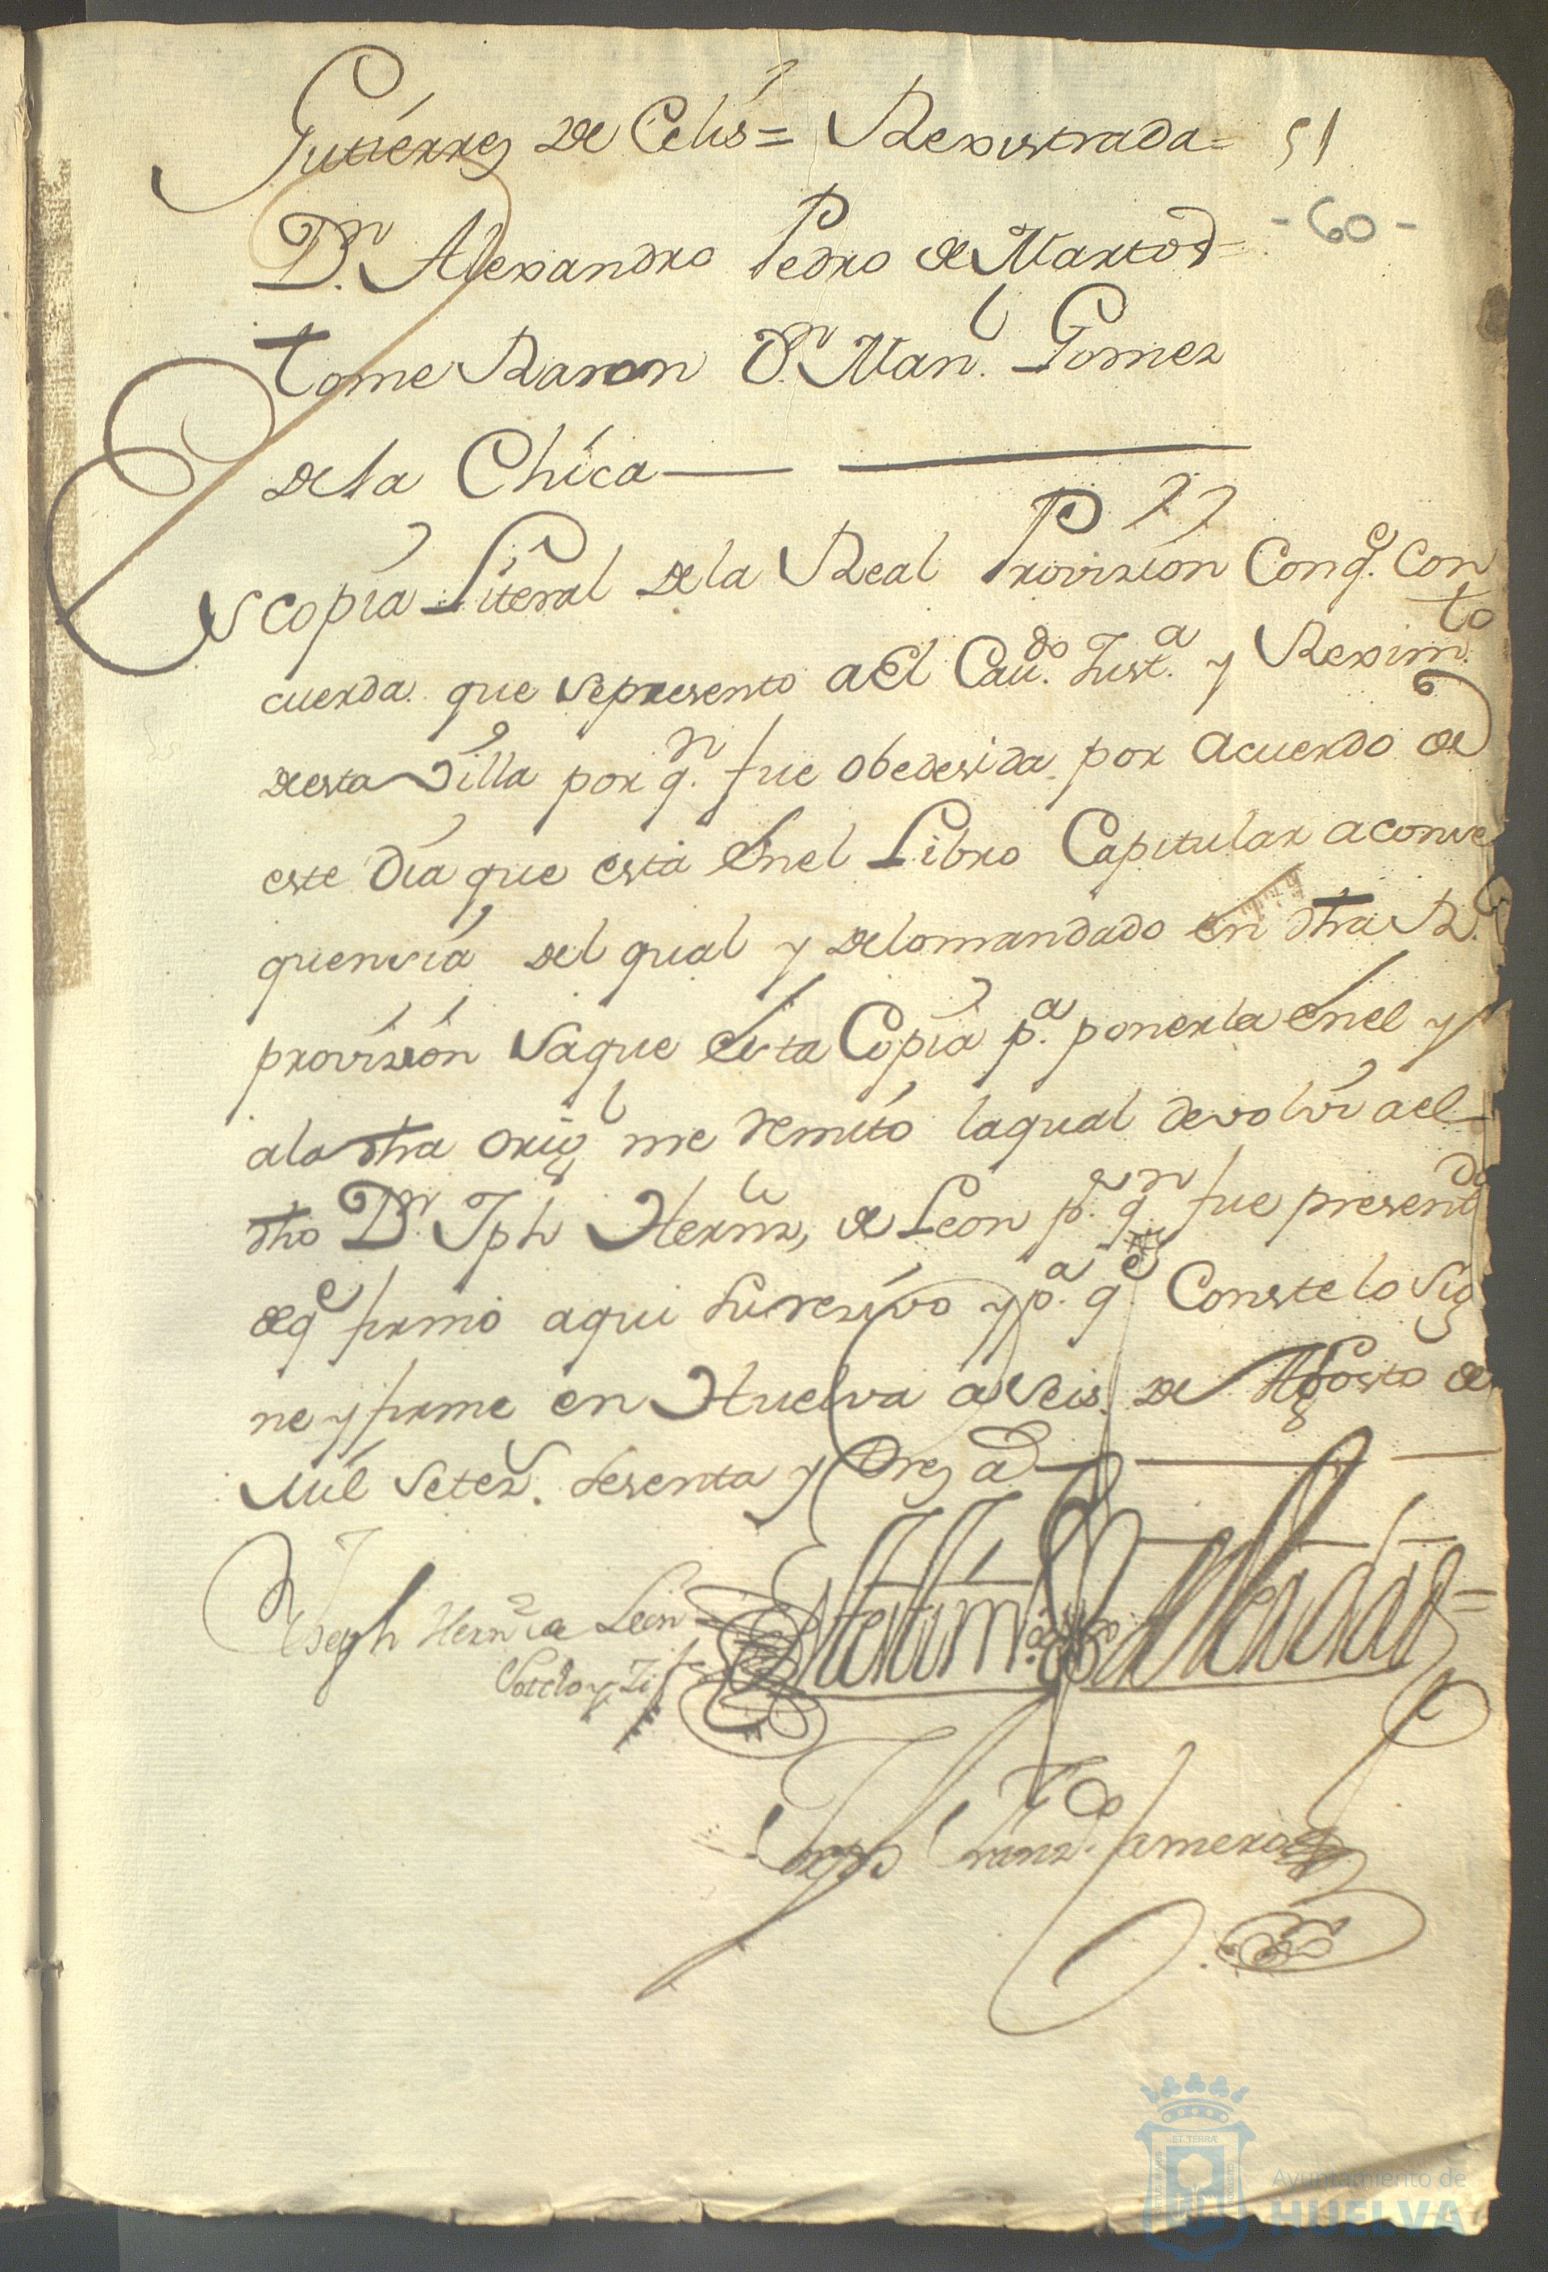 Gutierrez de Celis = Rexistrada = 51
Dn. Alexandro Pedro de Martos = - 60 -
tome Razon Dn. Manl. Gomez
de la Chica
Es copia Literal de la Real Provizion Conqe. Con
cuerda. que sepresento a el Caudo. Justa. y Reximto.
desta Villa por qn. fue obedesida por acuerdo de
este Dia que esta en el Libro Capitular a conse
quensia del qual y de lo mandado en dha Rl.
provizion saque esta Copia pa. ponerla en el y
a la dha origl me remito la qual devolvi a el
dho Dn. Jph Hernz, de Leon pr. qn fue presentda
de qe firmo aqui su rezivo y pa. qe. Conste lo sig
ne y firme en Huelva a seis de Agosto de
mil setez. sesenta y tres a
Joseph Hernz de Leon
Sotelo y
En testim. de Verdad =
Joseph Franzdo.